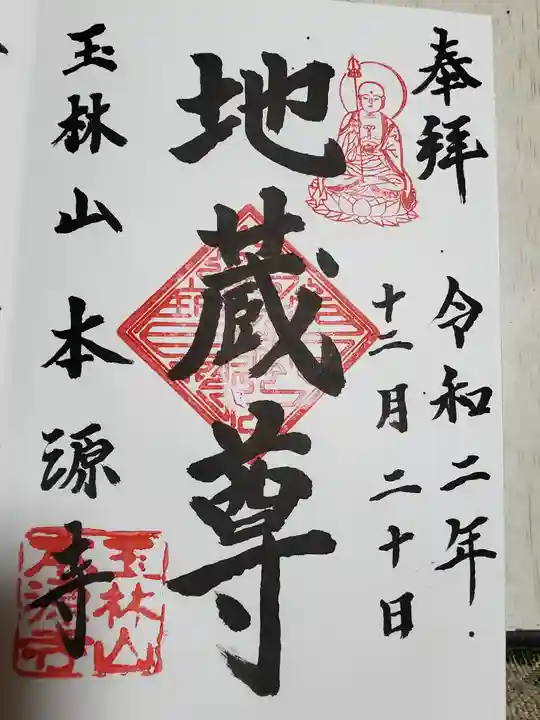 奉拝
令和二年
十二月二十日
地蔵尊
玉林山本源寺
玉林山
本源寺